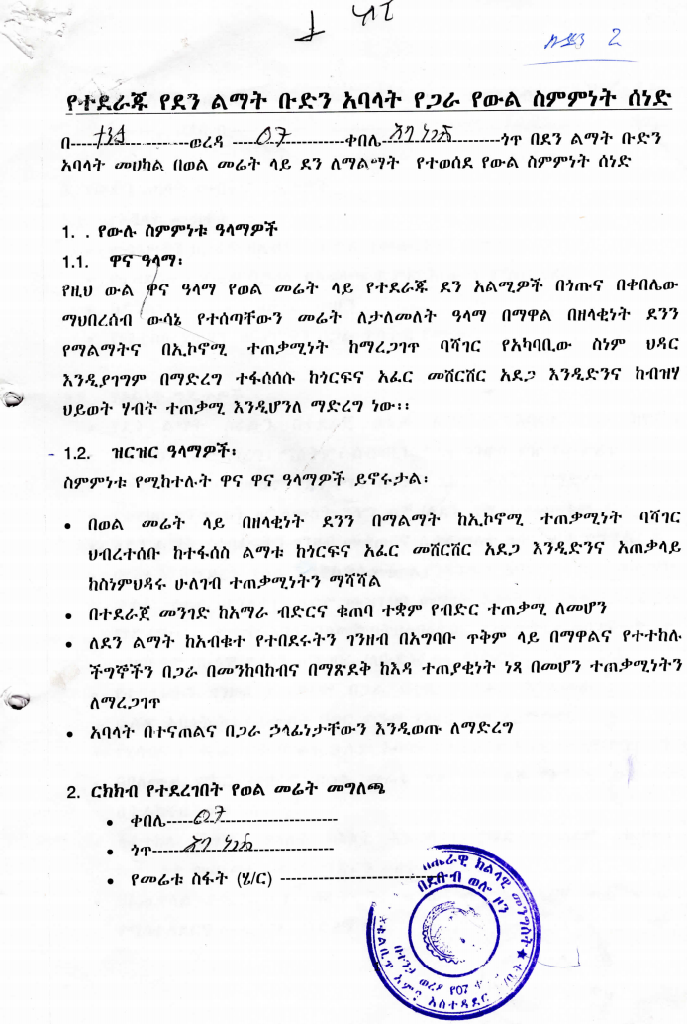 2
የተደራጁ የደን ልማት ቡድን አባላት የጋራ የውል ስምምነት ሰነድ
በ-------------------ወረዳ ---07---------------ቀበሌ-------------------ጎጥ በደን ልማት ቡድን
አባላት መሀከል በወል መሬት ላይ ደን ለማልማት የተወሰደ የውል ስምምነት ሰነድ
1. . የውሉ ስምምነቱ ዓላማዎች
1.1. ዋና ዓላማ፡
የዚህ ውል ዋና ዓላማ የወል መሬት ላይ የተደራጁ ደን አልሚዎች በጎጡና በቀበሌው
ማህበረሰብ ውሳኔ የተሰጣቸውን መሬት ለታለመለት ዓላማ በማዋል በዘላቂነት ደንን
የማልማትና በኢኮኖሚ ተጠቃሚነት ከማረጋገጥ ባሻገር የአካባቢው ስነም ህዳር
እንዲያገግም በማድረግ ተፋሰሰሱ ከጎርፍና አፈር መሸርሸር አደጋ እንዲድንና ከብዝሃ
ህይወት ሃብት ተጠቃሚ እንዲሆንለ ማድረግ ነው፡፡
1.2. ዝርዝር ዓላማዎች፡
ስምምነቱ የሚከተሉት ዋና ዋና ዓላማዎች ይኖሩታል፡
• በወል መሬት ላይ በዘላቂነት ደንን በማልማት ከኢኮኖሚ ተጠቃሚነት ባሻገር
ህብረተሰቡ ከተፋሰስ ልማቱ ከጎርፍና አፈር መሸርሸር አደጋ እንዲድንና አጠቃላይ
ከስነምህዳሩ ሁለገብ ተጠቃሚነትን ማሻሻል
• በተደራጀ መንገድ ከአማራ ብድርና ቁጠባ ተቋም የብድር ተጠቃሚ ለመሆን
• ለደን ልማት ከአብቁተ የተበደሩትን ገንዘብ በአግባቡ ጥቅም ላይ በማዋልና የተተከሉ
ችግኞችን በጋራ በመንከባከብና በማጽደቅ ከእዳ ተጠያቂነት ነጻ በመሆን ተጠቃሚነትን
ለማረጋገጥ
• አባላት በተናጠልና በጋራ ኃላፊነታቸውን እንዲወጡ ለማድረግ
2. ርክክብ የተደረገበት የወል መሬት መግለጫ
• ቀበሌ-----07---------------------
• ጎጥ---------------------------------
• የመሬቱ ስፋት (ሄ/ር) -----------------------------
ክልላዊ መንግስት
በደቡብ ወሎ ዞን
ወረዳ የ07
አስተዳደር